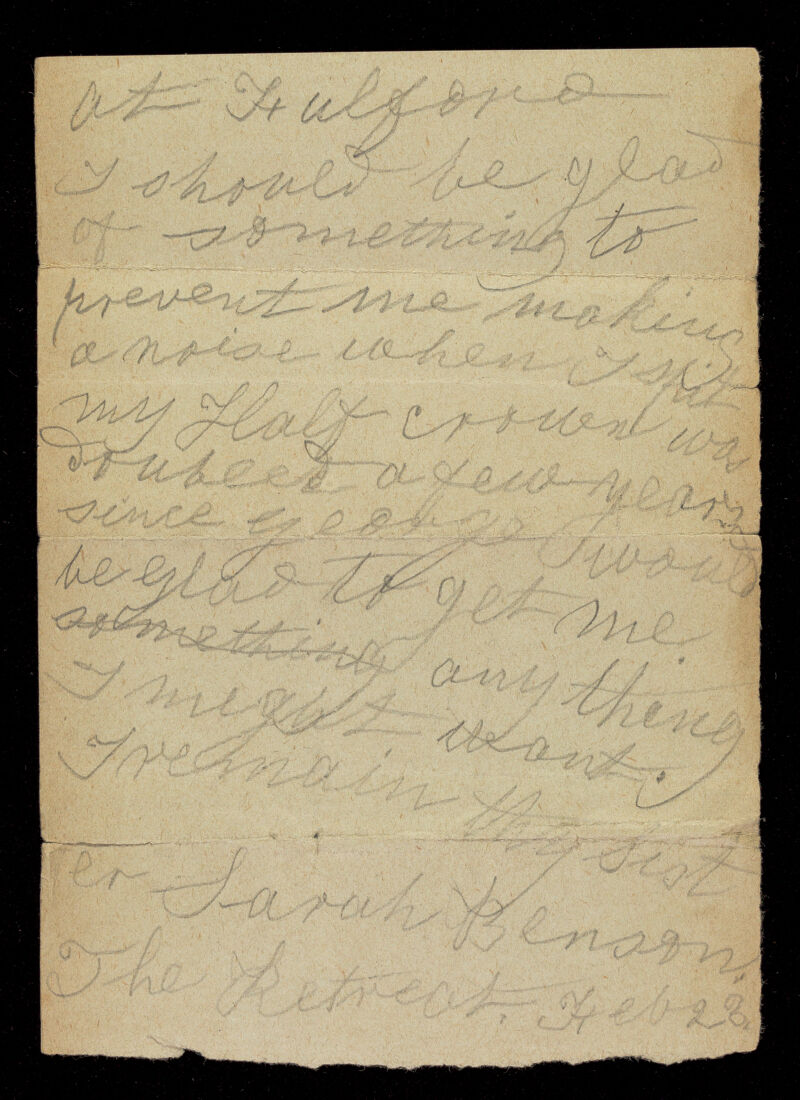 at Fulford
I should be glad
of something to
prevent me making
a noise when I spit
my Half crown was
doubeed a few years
since George I would
be glad to get me
something any thing
I meght want.
I remain thy sist
er Sarah Benson.
The Retreat. Feb 28.